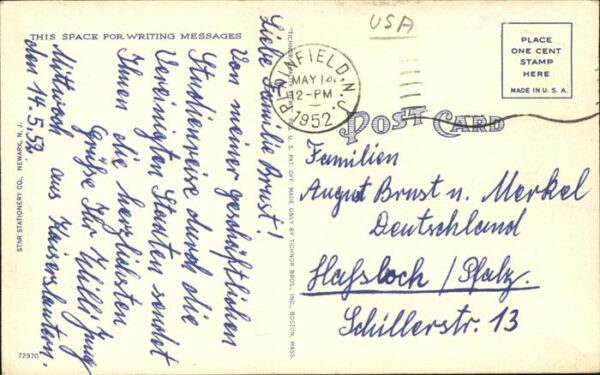 USA
THIS SPACE FOR WRITING MESSAGES
PLACE
ONE CENT
STAMP
HERE
MADE IN U. S. A.
PLAINFIELD, N.J.
MAY 14
12-PM
1952
POST CARD
Liebe Familie Brust!
Von meiner geschäftlichen
Studienreise durch die
Vereinigten Staaten sendet
Ihnen die herzlichsten
Grüße Ihr Willi Jung
aus Kaiserslautern.
Mittwoch
den 14.5.52
Familien
August Brust u. Merkel
Deutschland
Haßloch / Pfalz.
Schillerstr. 13
STAR STATIONERY CO., NEWARK, N. J.
REG. U. S. PAT. OFF. MADE ONLY BY TICHNOR BROS., INC., BOSTON, MASS.
72970